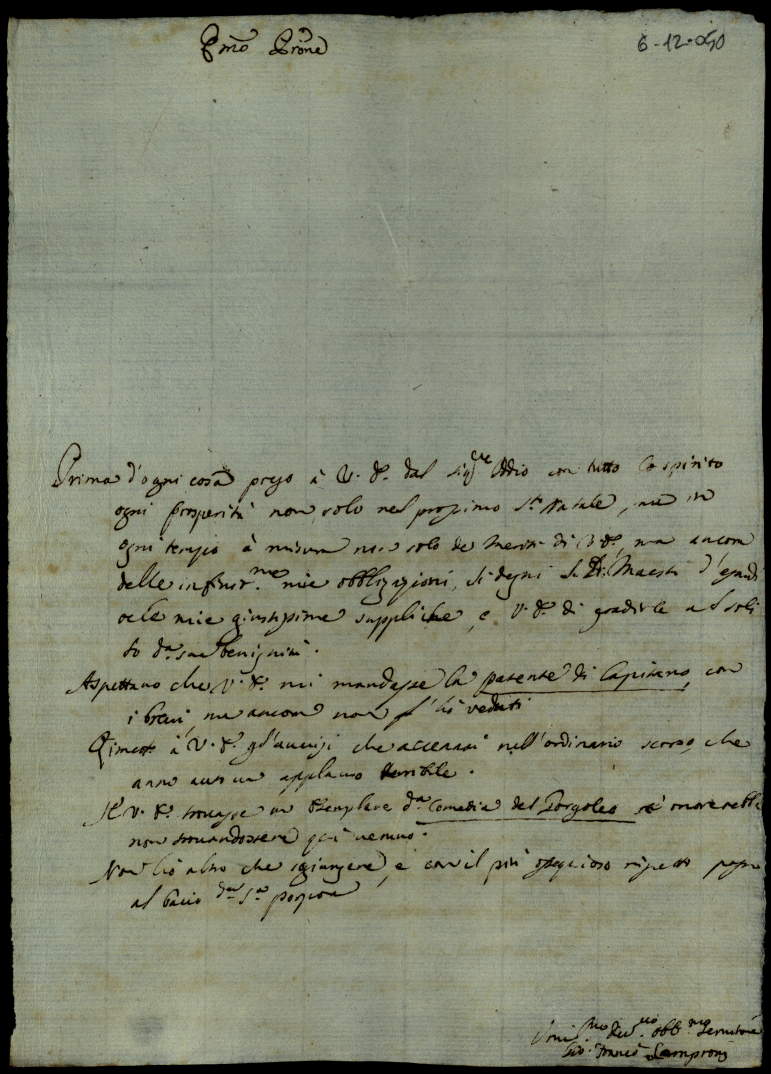 Emo Prone
6-12-050
Prima d'ogni cosa prego à V. E. dal Sigre Iddio con tutto lo spirito
ogni prosperità non solo nel prossimo Sto Natale, ma in
ogni tempo à misura non solo de meriti di V. E., ma ancora
delle infinitme mie obbligazioni, si degni S. D. Maestà d'esaudi
re le mie giustissime suppliche, e V. E. di gradirle al soli
to da sua benignità.
Aspettavo che V. E. mi mandasse la patente di Capitano, con
i brevi, ma ancora non l'hò veduti
Rimetto à V. E. gl'avvisi che accennai nell'ordinario scorso, che
anno avuto un applauso terribile.
Se V. E. trovasse un Esemplare da Comedia del Porgoleo
non trovandosene qui veruno.
Non hò altro che sogiungere, e con il più ossequioso rispetto passo
al bacio da Sa porpora
Umilmo Devmo Obbmo Servitore
Gio. Franco Lamproni